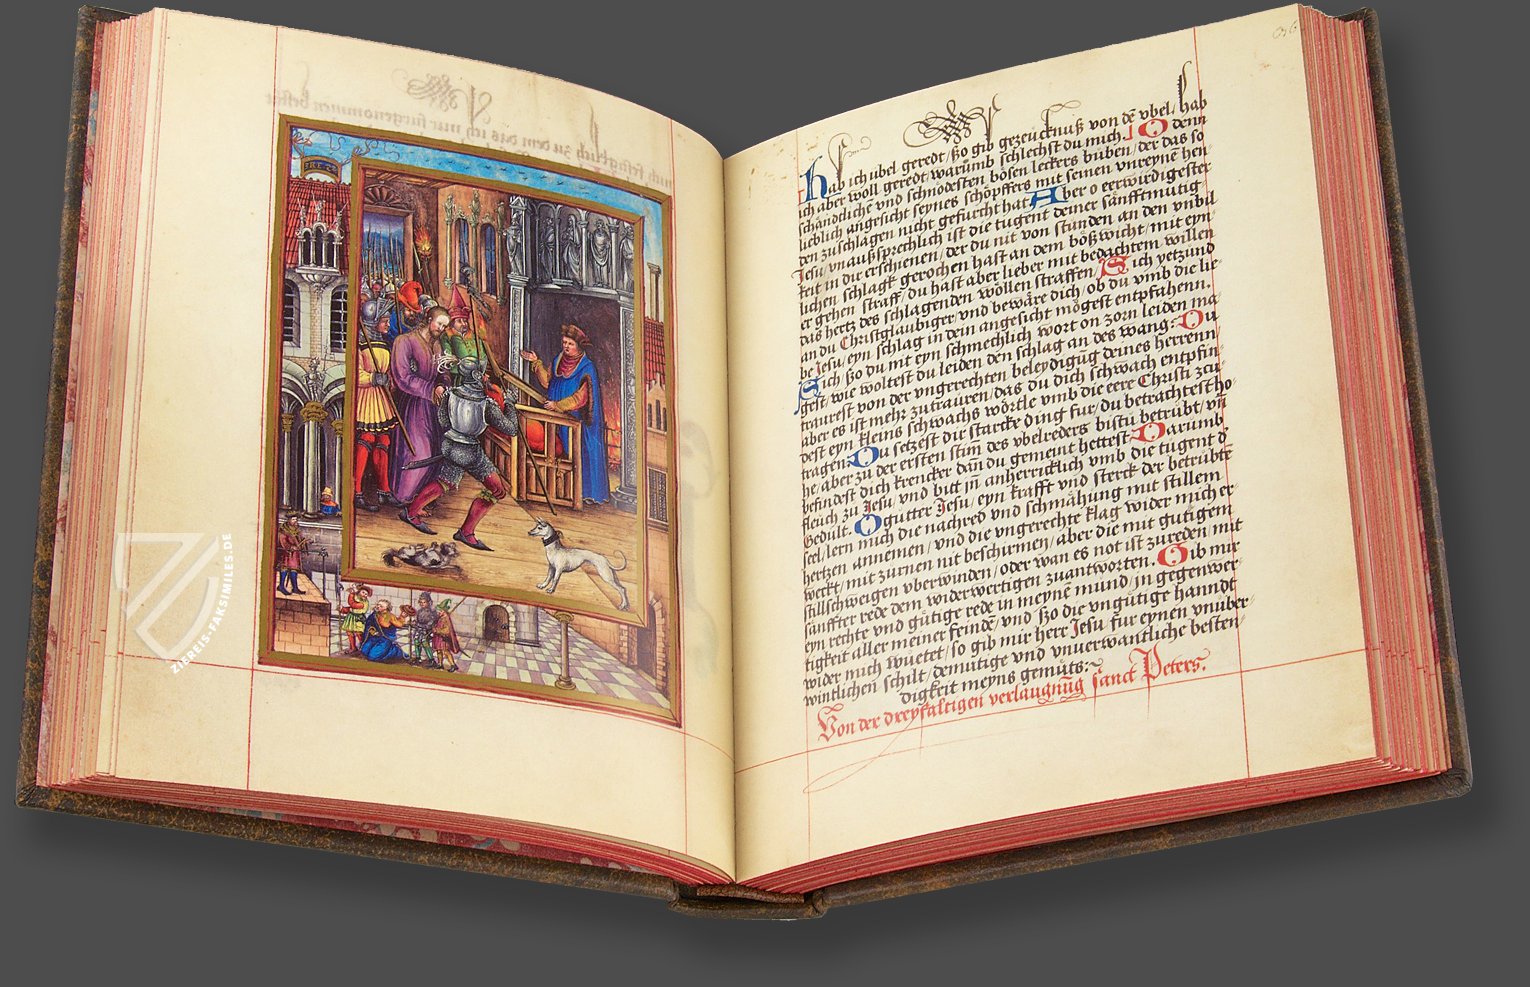 hab ich ubel geredt/ ßo gib gezeücknuß von dē vbel/ hab
ich aber woll geredt/ warümb schlechst du mich. O denn
schändtliche vnd schnödesten bösen leckers buben/ der das so
lieblich angesicht seynes schöpffers mit seinen vnreyne hen
den zuschlagen nicht gefurcht hat. Aber o eerwirdigester
Jesu/ vnaußsprechlich ist die tugent deiner sänfftmütig
keit in dir erschienen/ der du nit von stunden an den vnbil
lichen schlagk gerochen hast an dem bößwicht/ mit eyn
er gehen straff/ du hast aber lieber mit bedachtem willen
das hertz des schlagenden wöllen straffen/ Sich yetzund
an du Christglaubiger vnd beware dich/ ob du vmb die lie-
be Jesu/ eyn schlag in dein angesicht mögest entpfahenn.
Sich/ ßo du mit eyn schmechlich wort on zorn leiden ma
gest/ wie woltest du leiden den schlag an des wang: Du
traurest von der vngerechten beleydigūg deines herrenn/
aber es ist mehr zutrauren/ das du dich schwach entpfin-
dest eyn kleins schwachs wörtle vmb die eere Christi zu
tragen: Du setzest dir starcke ding fur/ du betrachtest ho-
he/ aber zu der ersten stim̄ des vbelreders bistu betrübt/ vn̄
befindest dich krencker dan̄ du gemeint hettest. Darumb
fleuch zu Jesu/ vnd bitt jn̄ anherrücklich vmb die tugent d
Gedült. O gutter Jesu/ eyn krafft vnd sterck der betrübte
seel/ lern mich die nachred vnd schmähung mit stillem
hertzen annemen/ vnd die vngerechte klag wider mich er-
weckt/ mit zurnen nit beschirmen/ aber die mit gutigem
stillschweigen vberwinden/ oder wan es not ist zureden mit
sänffter rede dem widerwertigen zuantworten. Gib mir
eyn rechte vnd gütige rede in meynē mund/ in gegenwer-
tigkeit aller meiner feinde/ vnd/ ßo die vngütige hanndt
wider mich wüetet/ so gib mir herr Jesu fur eynen vnüber-
wintlichen schilt/ demütige vnd vnuerwantliche besten-
digkeit meyns gemüts:~
Von der dreyfaltigen verlaugnūg sanct Peters.
ZIEREIS-FAKSIMILES.DE